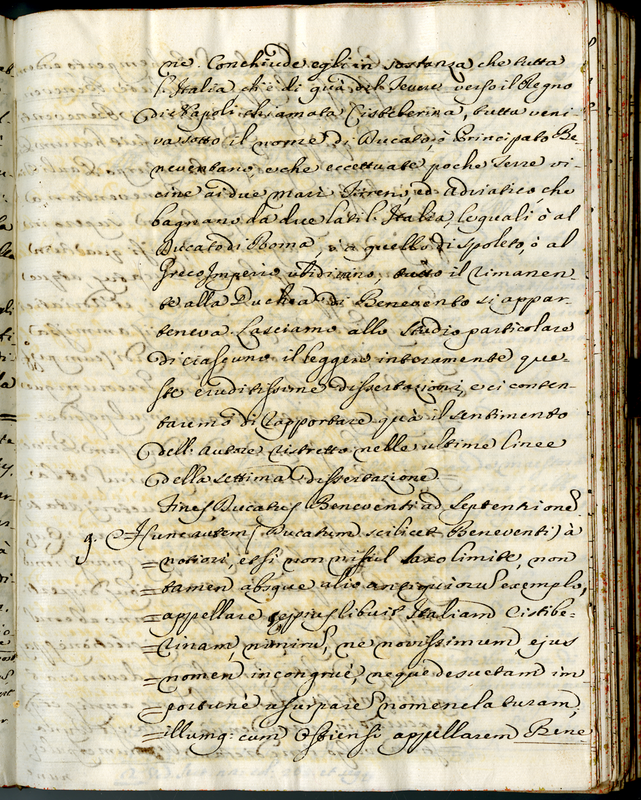 nie. Conchiude egli in sostanza che tutta
l'Italia ch'è di quà dil Tevere verso il Regno
di Napoli chiamata Cisteberina, tutta veni
va sotto il nome di Ducato, ò Principato Be
neventano, e che eccettuate poche Terre vi
cine ai due mari Tirreno, ed Adriatico, che
bagnano da due lati l'Italia, le quali ò al
Ducato di Roma, ò a quello di Spoleto, ò al
Greco Imperio ubidivano, tutto il rimanen
te alla Duchea di Benevento si appar
teneva. Lasciamo allo studio particolare
di ciascuno il leggere interamente que=
ste eruditissime dissertazioni, e ci conten=
taremo di rapportare quà il sentimento
dell'Autore ristretto nelle ultime linee
della settima dissertazione.
Fines Ducatus Beneventi ad Septentrione
9. Hunc autem (Ducatum scilicet Beneventi) à
=notiori, etsi non nisi saxo limite, non
=tamen absque alio antiquiorum exemplo,
=appellare sepius libuit Italiam Cistibe=
=rinam, nimirum, ne novissimum ejus
=nomen incongruè, neque desuetam im
=portunè usurpare nomenclaturam,
=illumq: cum Ostiensi appellarem Bene